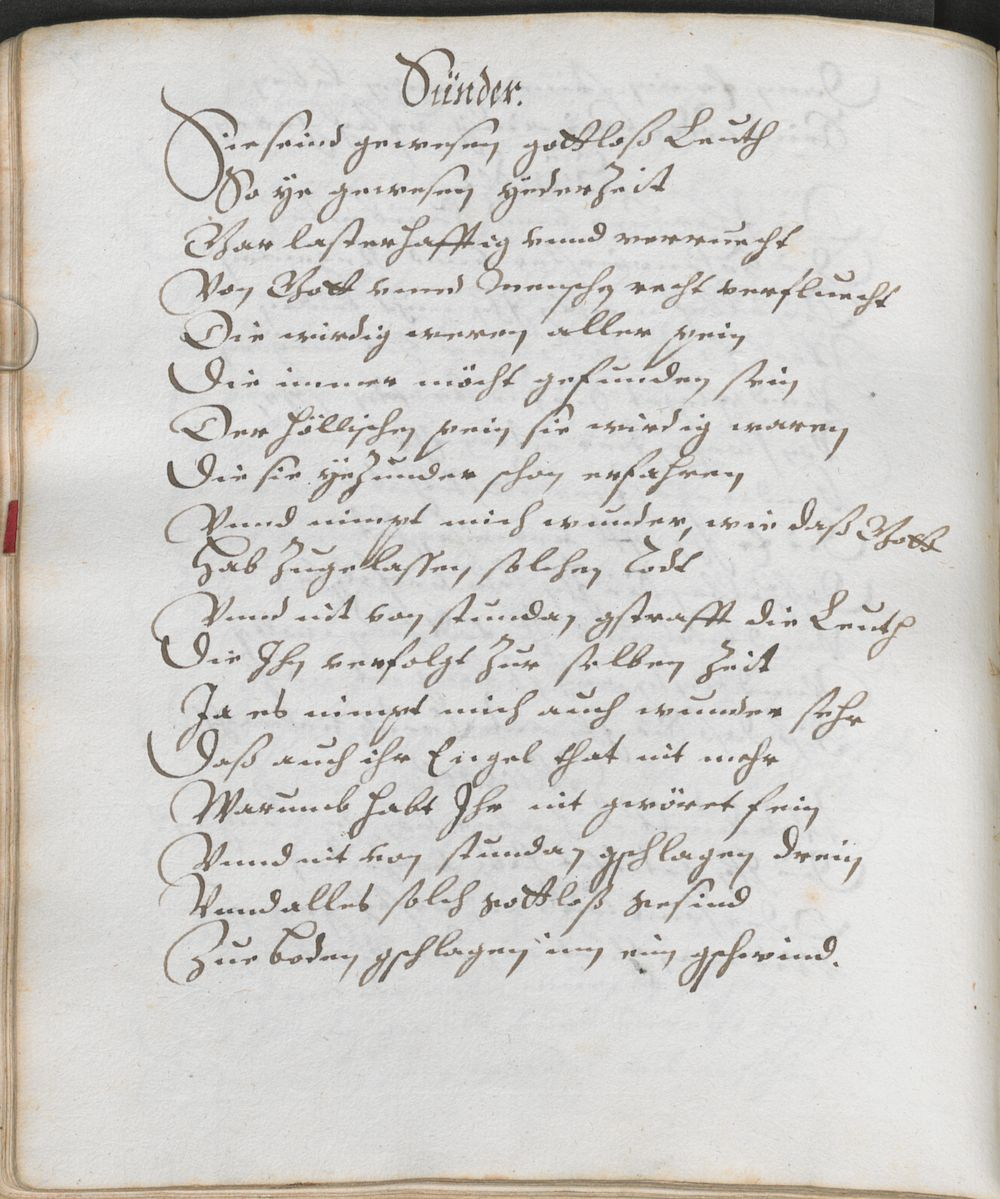 Sünder.
Sie seind gewesen gottloß Leuth
So ye gewesen yederzeit
Gar lasterhafftig vnnd verruecht
Von Gott vnnd Menschen recht verfluecht
Die wirdig weren aller pein
Die immer möcht gefunden sein
Der Höllischen pein sie wirdig waren
Die sie yezunder schon erfahren
Vnnd nimpt mich wunder, wie daß Gott
Hab zugelassen solchen Todt
Vnnd nit von stundan gstrafft die Leuth
Die Ihn verfolgt zur selben Zeit
Ja es nimpt mich auch wunder sehr
Daß auch ihr Engel that nit mehr
Warumb habt Ihr nit gwöret fein
Vnnd nit von stundan gschlagen drein
Vnnd alles solch gottloß gesind
Zue boden gschlagen inn eim gschwind.